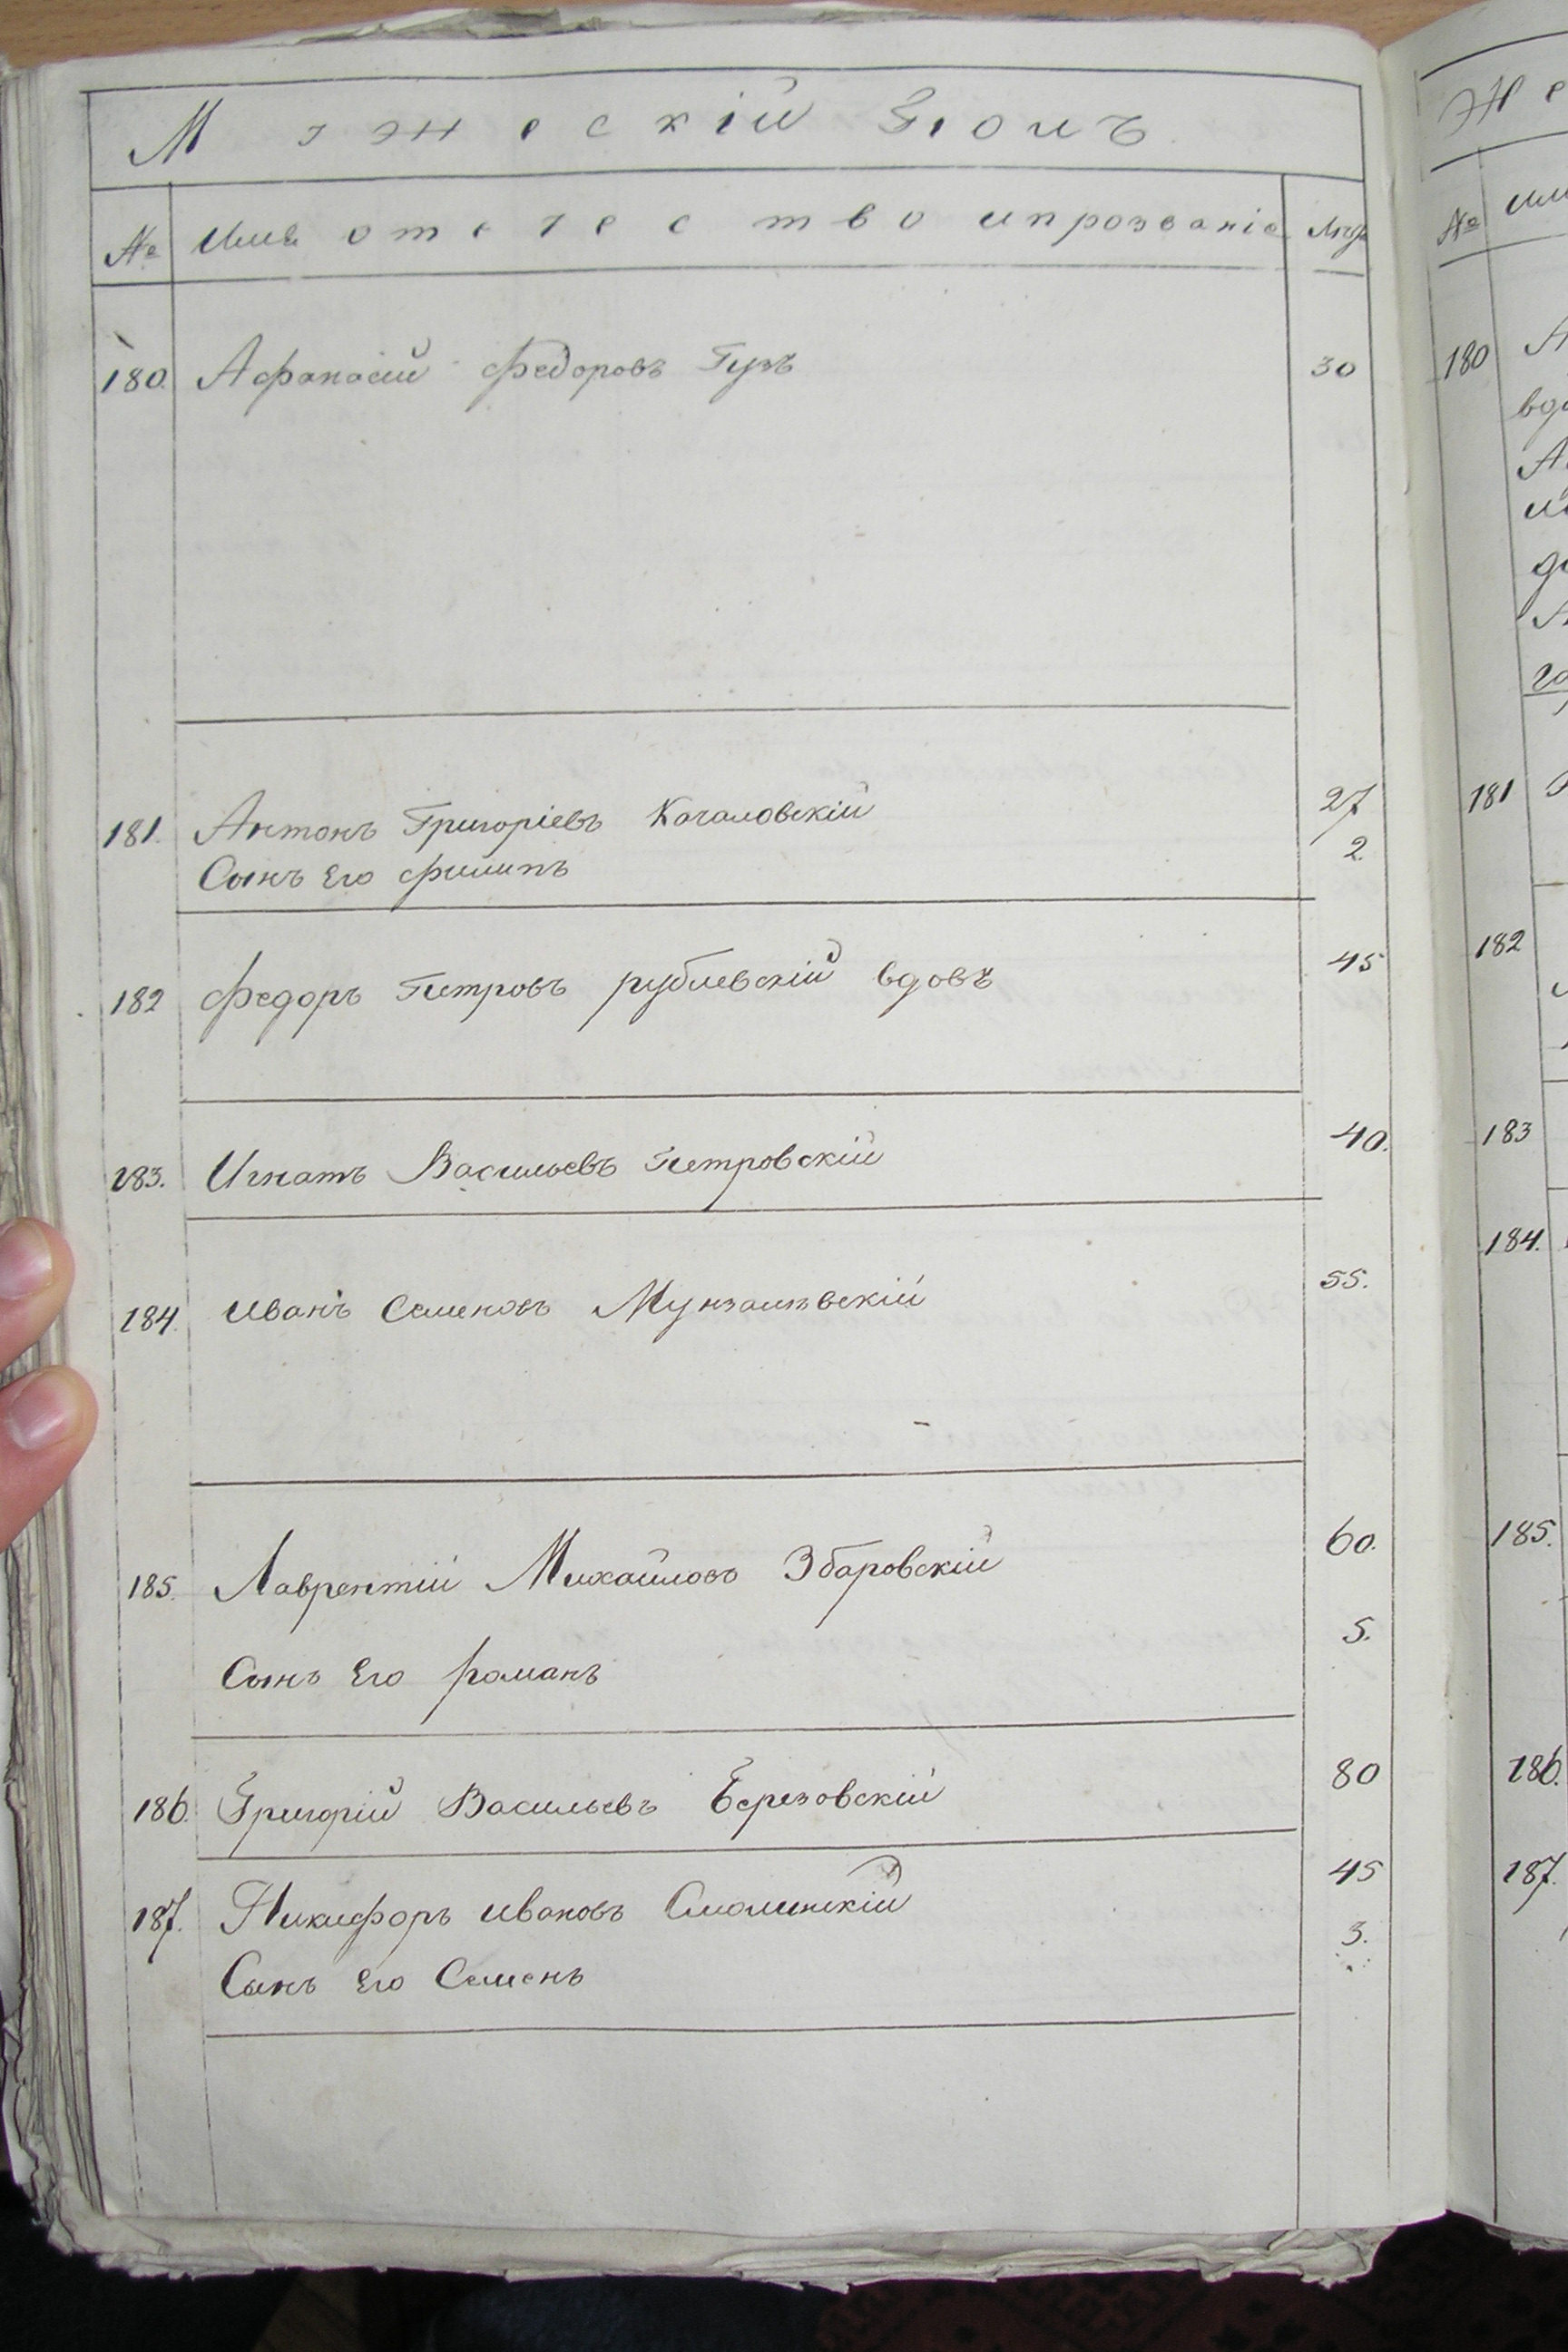 Мужескій Полъ
№ Имя отечество ипрозваніе Лѣта
180. Афанасій Федоровъ Гузъ 30
181. Антонъ Григоріевъ Качаловскій 27
Сынъ Его филипъ 2.
182 Федоръ Петровъ рублевскій вдовъ 45
183. Игнатъ Васильевъ Петровскій 40.
184. Иванъ Семеновъ 55.
185. Лаврентій Михайловъ Збаровскій 60.
Сынъ Его романъ 5.
186. Григорій Васильевъ Березовскій 80
187. Никифоръ Ивановъ Смолинскій 45
Сынъ Его Семенъ 3.
№
180
181
182
183
184.
185.
186.
187.